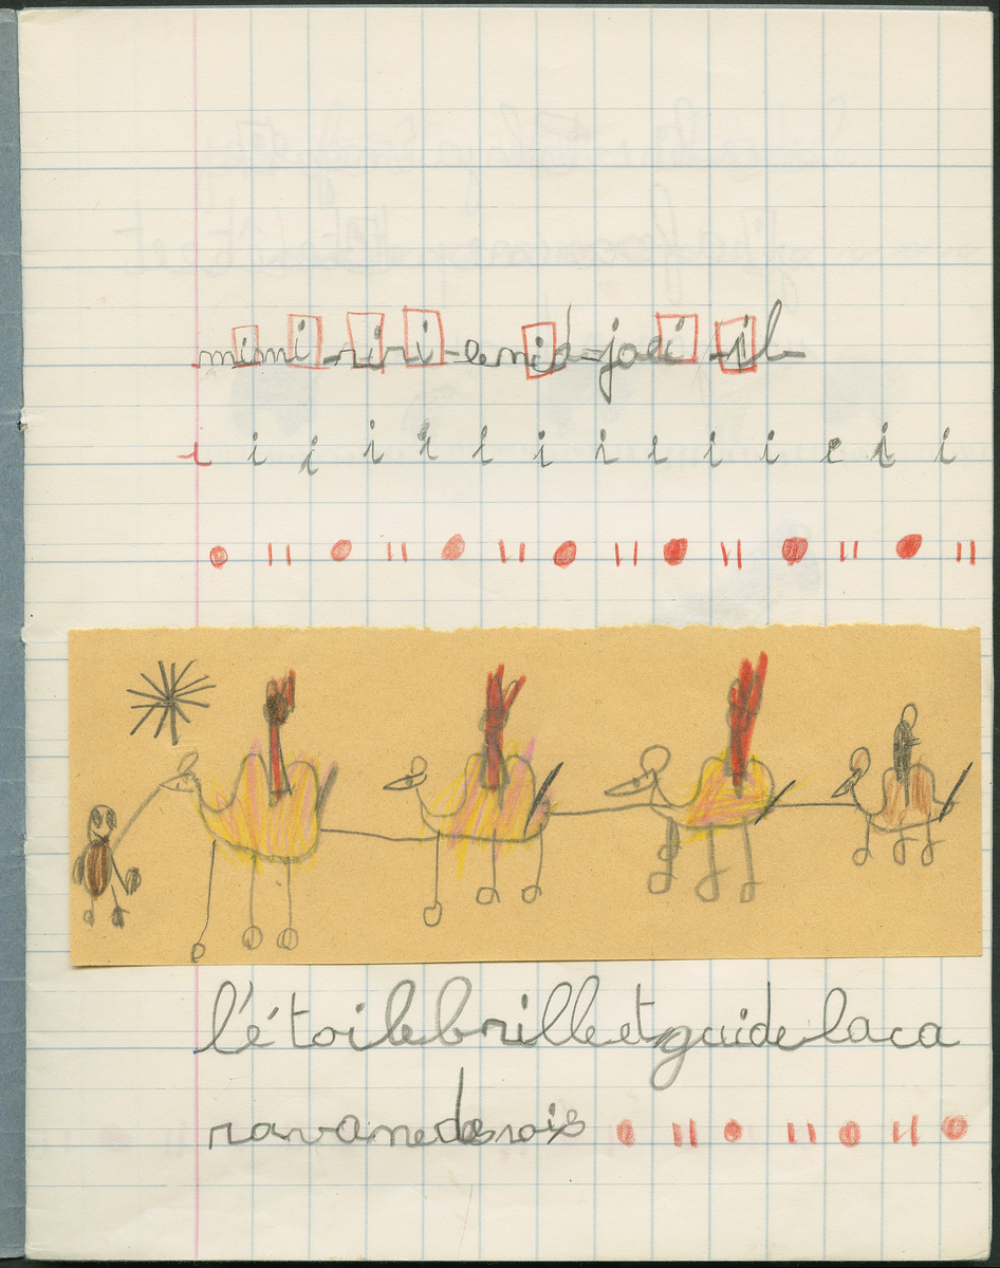 mimi - riri - le nid - joli - il -
i i i i i i i i i i i i i i
l'étoile brille et guide la ca
ravane des rois